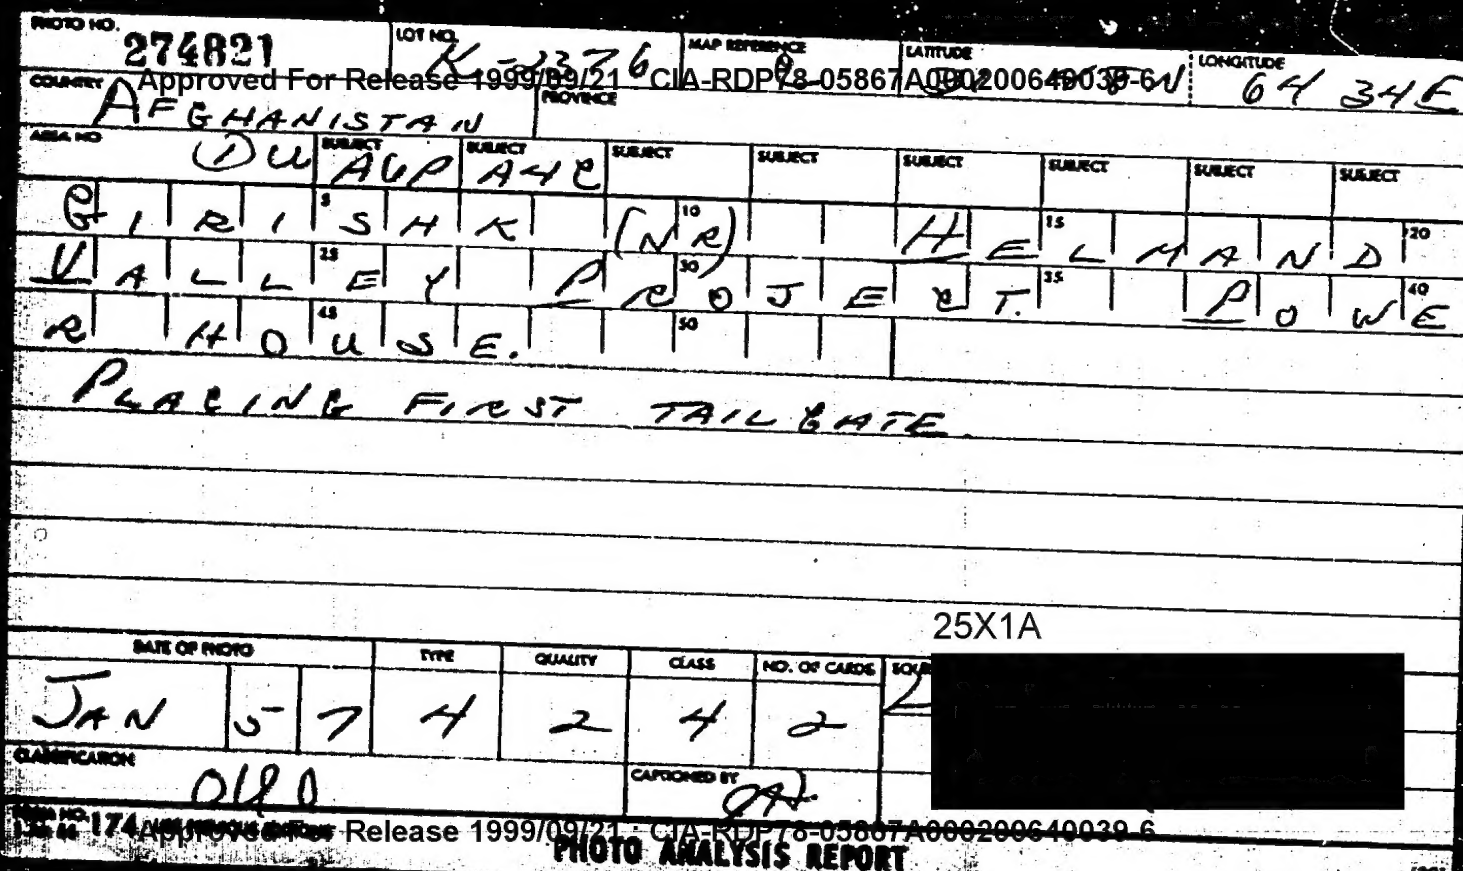 PHOTO NO. 274821 LOT NO. K-3376 MAP REFERENCE LATITUDE LONGITUDE 64 34E
Approved For Release 1999/09/21 : CIA-RDP78-05867A000200640039-6
COUNTRY AFGHANISTAN PROVINCE
AREA NO DU SUBJECT AGP SUBJECT A4C SUBJECT SUBJECT SUBJECT SUBJECT SUBJECT SUBJECT
GIRISHK (NR) HELMAND
VALLEY PROJECT. POWE
R HOUSE.
PLACING FIRST TAILGATE.
25X1A
DATE OF PHOTO TYPE QUALITY CLASS NO. OF CARDS
JAN 57 4 2 4 2
CLASSIFICATION CAPTIONED BY
FORM NO. 174
Approved For Release 1999/09/21 : CIA-RDP78-05867A000200640039-6
PHOTO ANALYSIS REPORT